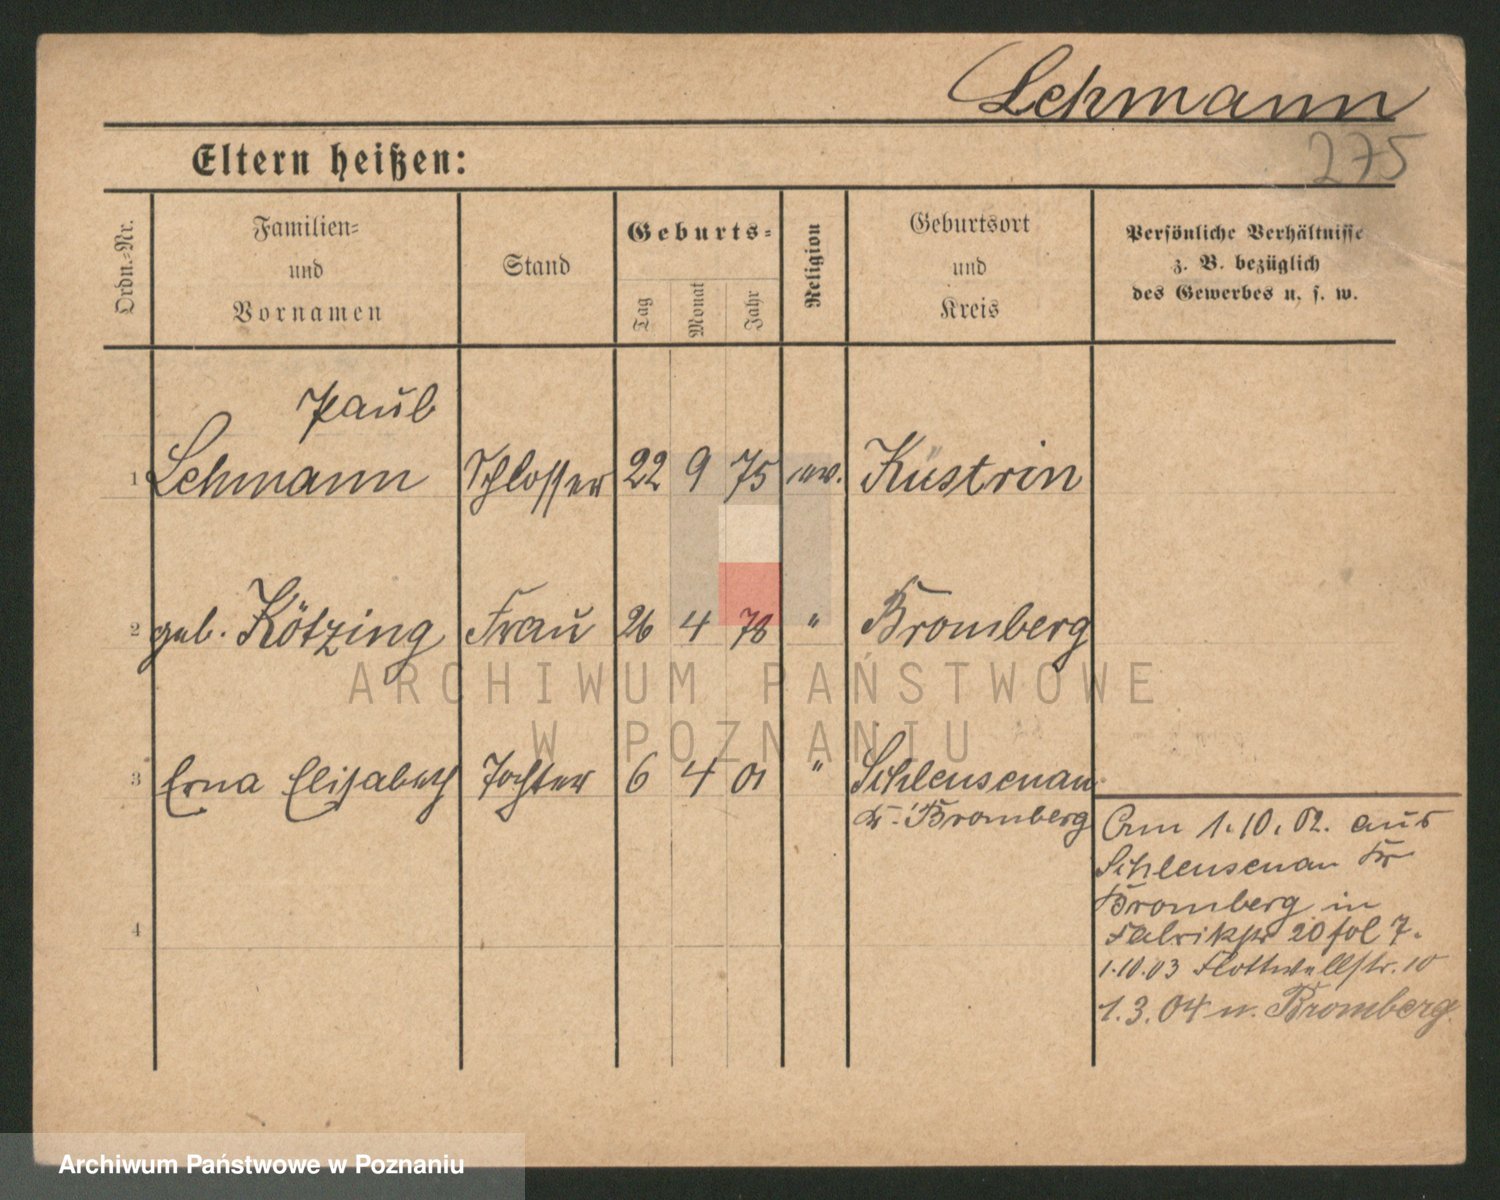 Lehmann
275
Eltern heißen:
Ordn.-Nr.
Familien-
und
Vornamen
Stand
Geburts-
Tag
Monat
Jahr
Religion
Geburtsort
und
Kreis
Persönliche Verhältnisse
z. B. bezüglich
des Gewerbes u. s. w.
Paul
1 Lehmann Schlosser 22 9 75 ev. Küstrin
2 geb. Kötzing Frau 26 4 78 " Bromberg
3 Erna Elisabeth Tochter 6 4 01 " Schleusenau
Kr. Bromberg
4
Am 1.10.02. aus
Schleusenau Kr
Bromberg in
Fabrikstr 20 fol 7.
1.10.03 Flottwellstr. 10
1.3.04 n. Bromberg.
ARCHIWUM PAŃSTWOWE
W POZNANIU
Archiwum Państwowe w Poznaniu